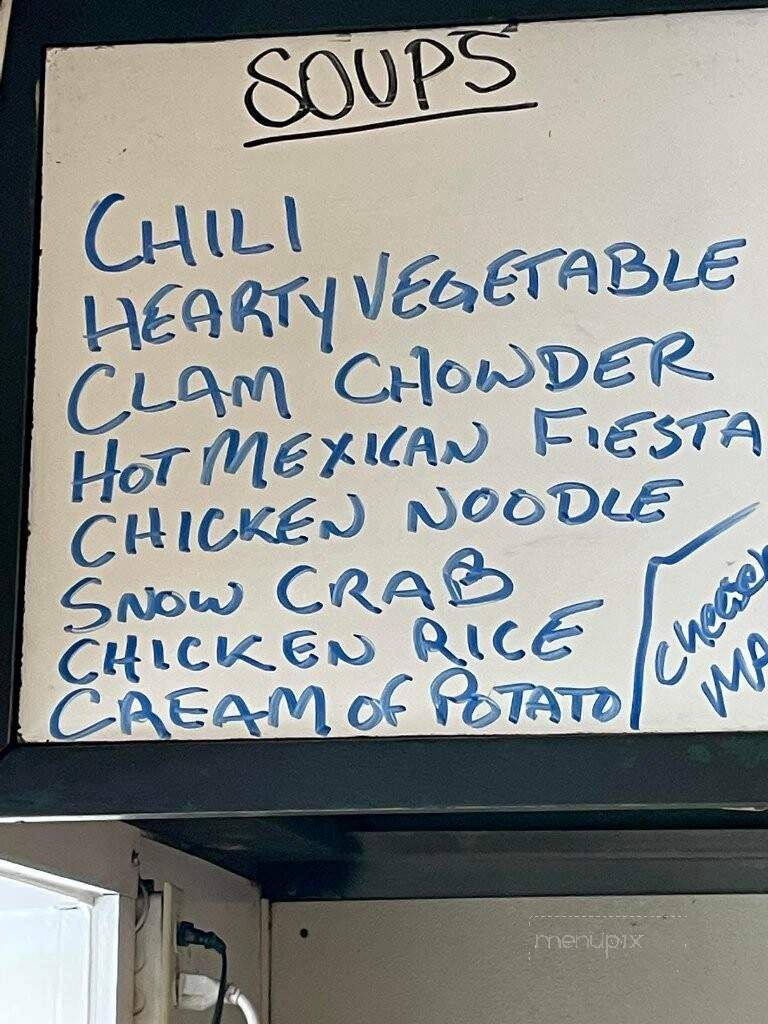 SOUPS
CHILI
HEARTY VEGETABLE
CLAM CHOWDER
HOT MEXICAN FIESTA
CHICKEN NOODLE
SNOW CRAB
CHICKEN RICE
CREAM OF POTATO
menupix